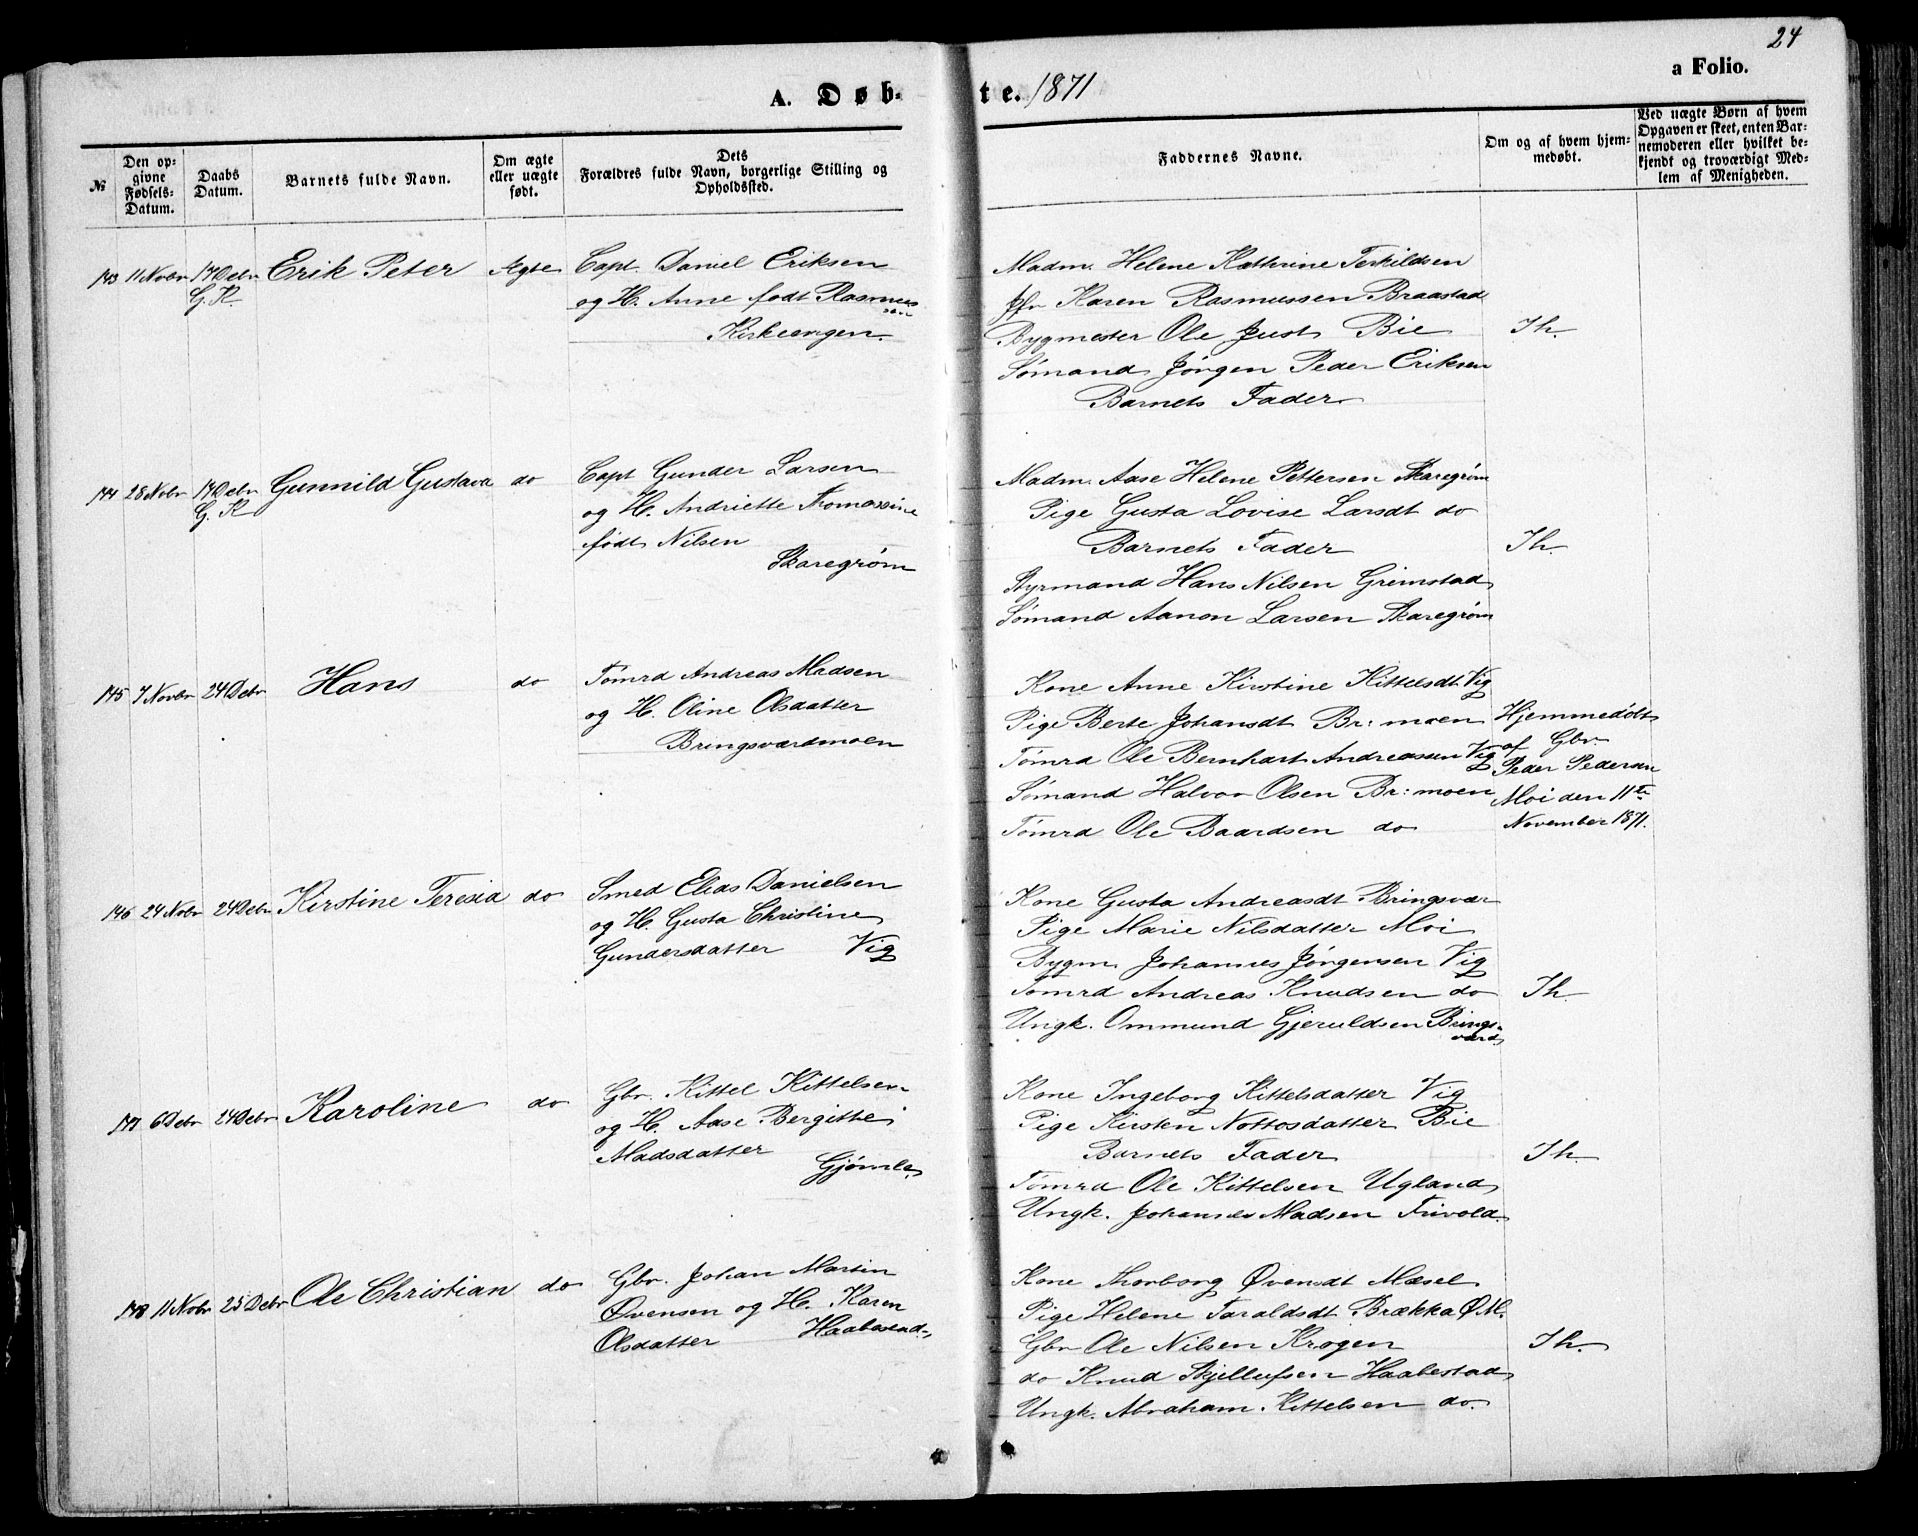 24
a Folio.
A. Døb- te. 1871
№
Den op-
givne
Fødsels-
Datum.
Daabs
Datum.
Barnets fulde Navn.
Om ægte
eller uægte
født.
Dets
Forældres fulde Navn, borgerlige Stilling og
Opholdssted.
Faddernes Navne.
Om og af hvem hjem-
medøbt.
Ved uægte Børn af hvem
Opgaven er skeet, enten Bar-
nemoderen eller hvilket be-
kjendt og troværdigt Med-
lem af Menigheden.
143 11 Novbr 17 Debr Erik Peter Ægte
G. K.
Capt. Daniel Eriksen
og H. Anne født Rasmus
sen
Kirkeengen.
Madm. Helene Kathrine Terkildsen
Jfr Karen Rasmussen Braastad
Bygmester Ole Just Bie
Sømand Jørgen Peder Eriksen
Barnets Fader
Ih.
144 28 Novbr 17 Debr Gunnild Gustava do
G. K
Capt Gunder Larsen
og H. Andriette Thomassine
født Nilsen
Skaregrøm
Madm. Aase Helene Pettersen Skaregrøm
Pige Gusta Lovise Larsdt do
Barnets Fader
Styrmand Hans Nilsen Grimstad
Sømand Aanon Larsen Skaregrøm
Ih.
145 7 Novbr 24 Debr Hans do
Tømrd Andreas Madsen
og H. Oline Olsdatter
Bringsværdmoen
Kone Anne Kirstine Kittelsdt Vig
Pige Berte Johansdt Br: moen
Tømrd Ole Bernhart Andreassen Vig
Sømand Halvor Olsen Br: moen
Tømrd Ole Baardsen do
Hjemmedøbt
af Gbr.
Peder Pedersen
Moi den 11te
November 1871.
146 24 Novbr 24 Debr Kirstine Teresia do
Smed Elias Danielsen
og H. Gusta Christine
Gundersdatter Vig
Kone Gusta Andreasdt Bringsvær
Pige Marie Nilsdatter Moi
Bygm. Johannes Jørgensen Vig
Tømrd Andreas Knudsen do
Ungk. Ommund Gjeruldsen Brings-
værd
Ih
147 6 Debr 24 Debr Karoline do
Gbr. Kittel Kittelsen
og H. Aase Bergitte
Madsdatter
Gjømle
Kone Ingeborg Kittelsdatter Vig
Pige Kirsten Nottosdatter Bie
Barnets Fader
Tømrd Ole Kittelsen Ugland
Ungk. Johannes Madsen Frivold.
Ih.
148 11 Novbr 25 Debr Ole Christian do
Gbr. Johan Martin
Øvensen og H. Karen
Olsdatter Haabestad
Kone Thorborg Øvensdt Mæsel
Pige Helene Taraldsdt Brække Ø M.
Gbr Ole Nilsen Krogen
do Knud Skjellufsen Haabestad
Ungk. Abraham Kittelsen do.
Ih.